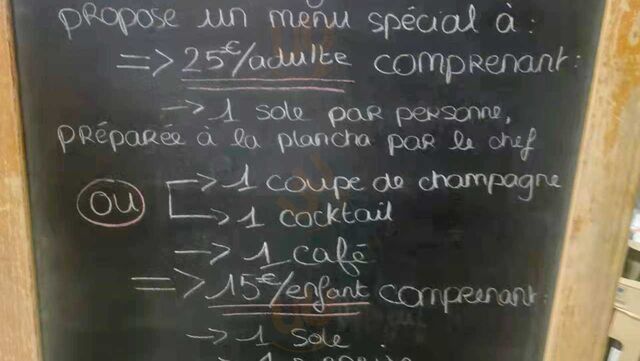 propose un menu spécial à :
=> 25€/adulte comprenant :
-> 1 sole par personne,
préparée à la plancha par le chef
OU -> 1 coupe de champagne
-> 1 cocktail
-> 1 café
=> 15€/enfant comprenant :
-> 1 sole